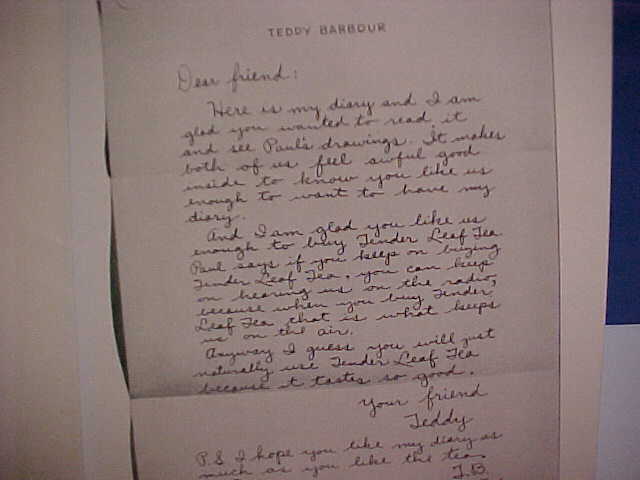 TEDDY BARBOUR
Dear friend:
Here is my diary and I am
glad you wanted to read it
and see Paul's drawings. It makes
both of us feel awful good
inside to know you like us
enough to want to have my
diary.
And I am glad you like us
enough to buy Tender Leaf Tea
Paul says if you keep on buying
Tender Leaf Tea, you can keep
on hearing us on the radio,
because when you buy Tender
Leaf Tea that is what keeps
us on the air.
Anyway I guess you will just
naturally use Tender Leaf Tea
because it tastes so good.
Your friend
Teddy
P.S I hope you like my diary as
much as you like the tea.
T.B.